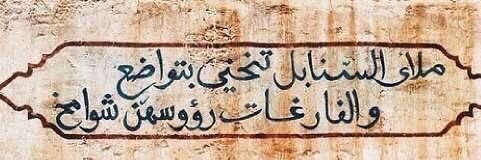 ملأى السنابل تنحني بتواضع
والفارغات رؤوسهن شوامخ